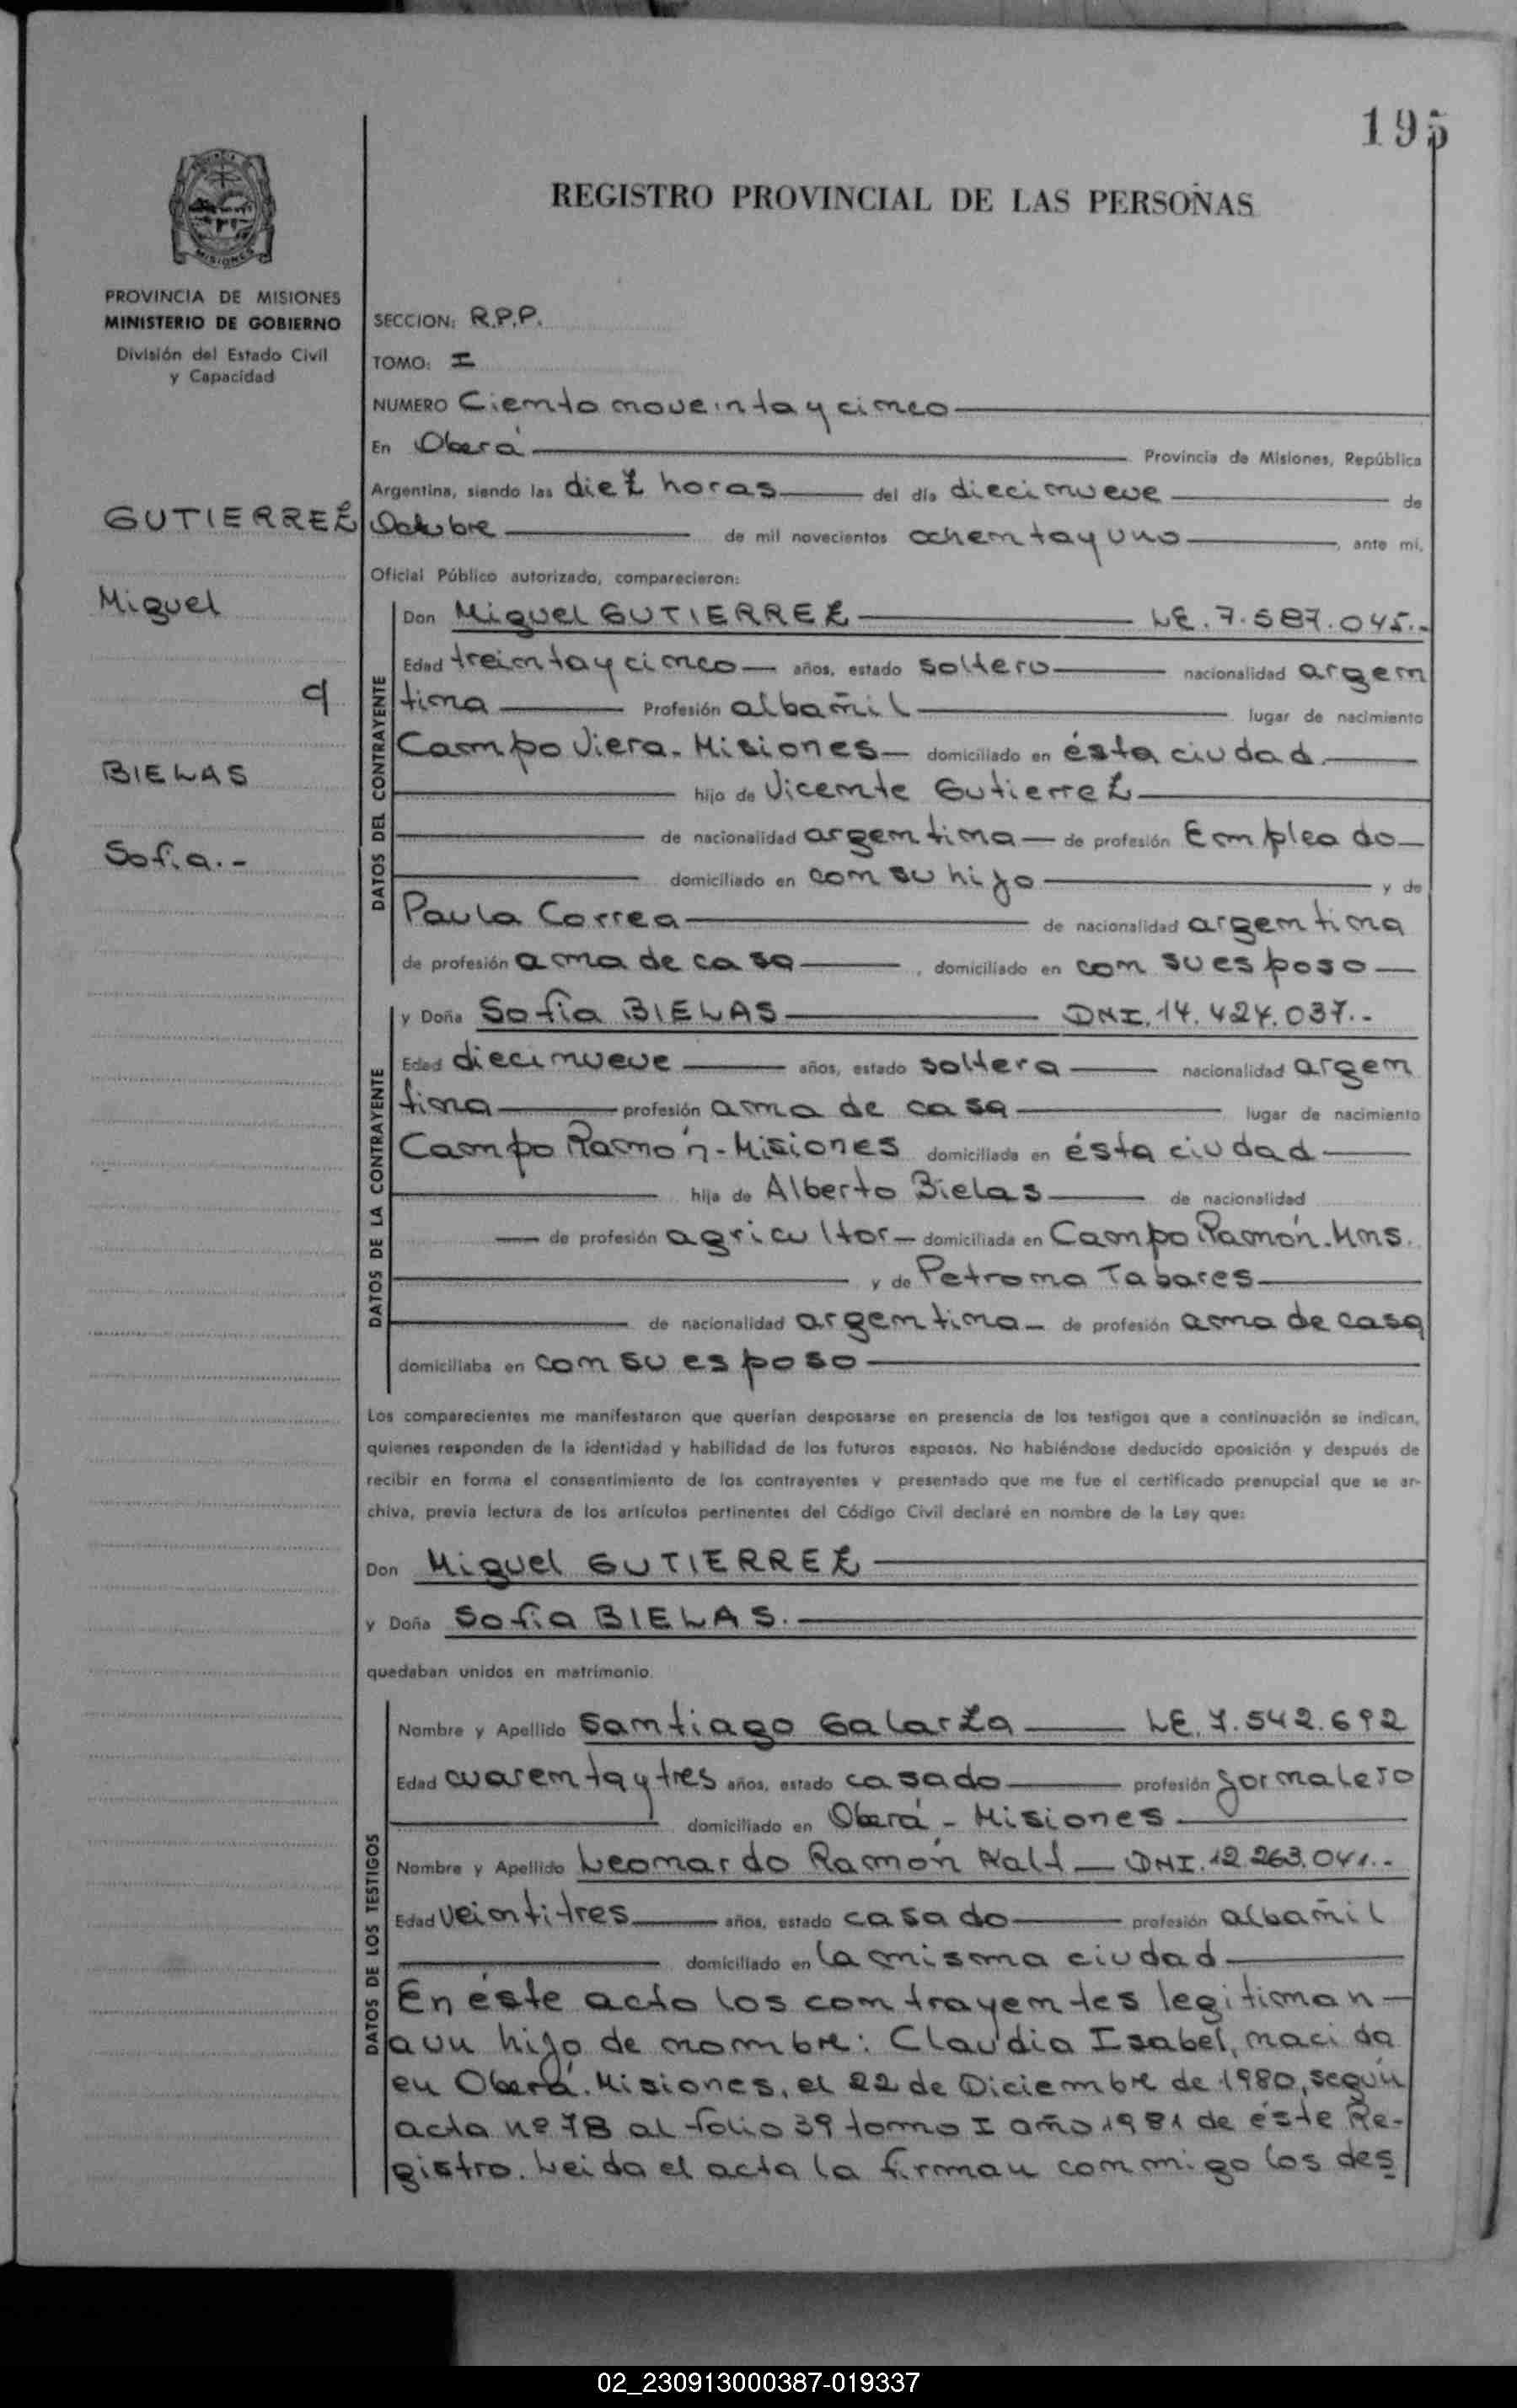 195
REGISTRO PROVINCIAL DE LAS PERSONAS
MISIONES
PROVINCIA DE MISIONES
MINISTERIO DE GOBIERNO
División del Estado Civil
y Capacidad
GUTIERREZ
Miguel
q
BIELAS
Sofia.-
SECCION: R.P.P.
TOMO: I
NUMERO Ciento noveinta y cinco
En Oberá Provincia de Misiones, República
Argentina, siendo las diez horas del día diecinueve de
Octubre de mil novecientos ochenta y uno, ante mí,
Oficial Público autorizado, comparecieron:
DATOS DEL CONTRAYENTE
Don Miguel GUTIERREZ LE. 7.587.045.-
Edad treinta y cinco años, estado soltero nacionalidad argen
tina Profesión albañil lugar de nacimiento
Campo Viera - Misiones domiciliado en ésta ciudad
hijo de Vicente Gutierrez
de nacionalidad argentina de profesión Empleado
domiciliado en con su hijo y de
Paula Correa de nacionalidad argentina
de profesión ama de casa, domiciliado en con su esposo
DATOS DE LA CONTRAYENTE
y Doña Sofía BIELAS DNI. 14.424.037.-
Edad diecinueve años, estado soltera nacionalidad argen
tina profesión ama de casa lugar de nacimiento
Campo Ramón - Misiones domiciliada en ésta ciudad
hija de Alberto Bielas de nacionalidad
de profesión agricultor domiciliada en Campo Ramón. Mns.
y de Petrona Tabares
de nacionalidad argentina de profesión ama de casa
domiciliaba en con su esposo
Los comparecientes me manifestaron que querían desposarse en presencia de los testigos que a continuación se indican,
quienes responden de la identidad y habilidad de los futuros esposos. No habiéndose deducido oposición y después de
recibir en forma el consentimiento de los contrayentes y presentado que me fue el certificado prenupcial que se ar-
chiva, previa lectura de los artículos pertinentes del Código Civil declaré en nombre de la Ley que:
Don Miguel GUTIERREZ
y Doña Sofia BIELAS.
quedaban unidos en matrimonio.
DATOS DE LOS TESTIGOS
Nombre y Apellido Santiago Galarza LE. 7.542.692
Edad cuarenta y tres años, estado casado profesión jornalero
domiciliado en Oberá - Misiones
Nombre y Apellido Leonardo Ramón DNI. 12.263.041.-
Edad veintitres años, estado casado profesión albañil
domiciliado en la misma ciudad
En éste acto los contrayentes legitiman
a un hijo de nombre: Claudia Isabel, nacida
en Oberá. Misiones, el 22 de Diciembre de 1980, según
acta nº 78 al folio 39 tomo I año 1981 de éste Re-
gistro. Leida el acta la firman conmigo los des
02_230913000387-019337